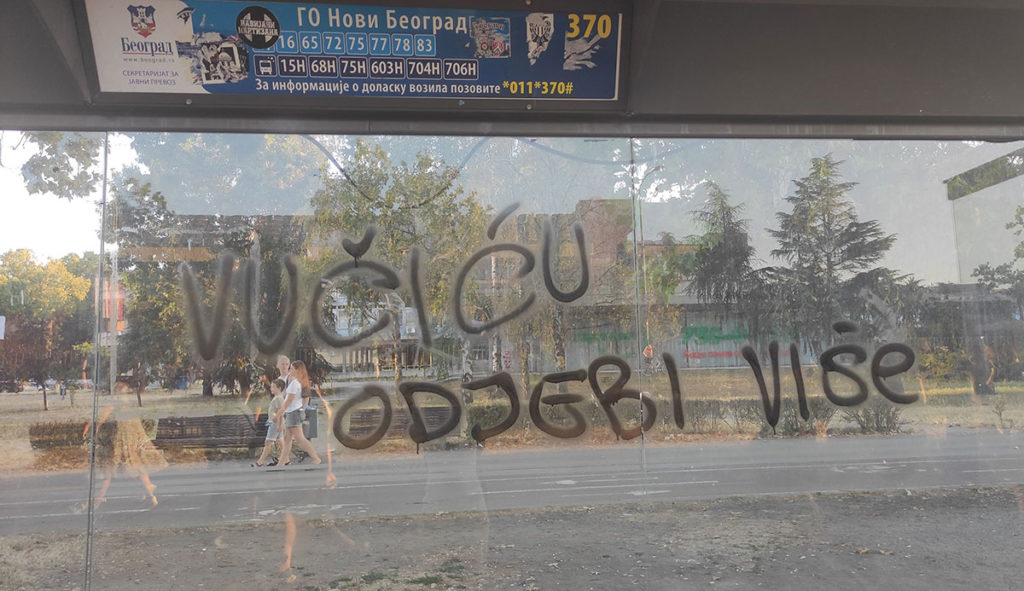 Београд
www.beograd.rs
СЕКРЕТАРИЈАТ ЗА
ЈАВНИ ПРЕВОЗ
НАВИЈАЧИ
ПАРТИЗАНА
ГО Нови Београд
370
16 65 72 75 77 78 83
15H 68H 75H 603H 704H 706H
За информације о доласку возила позовите *011*370#
VUČIĆU
ODJEBI VIŠE